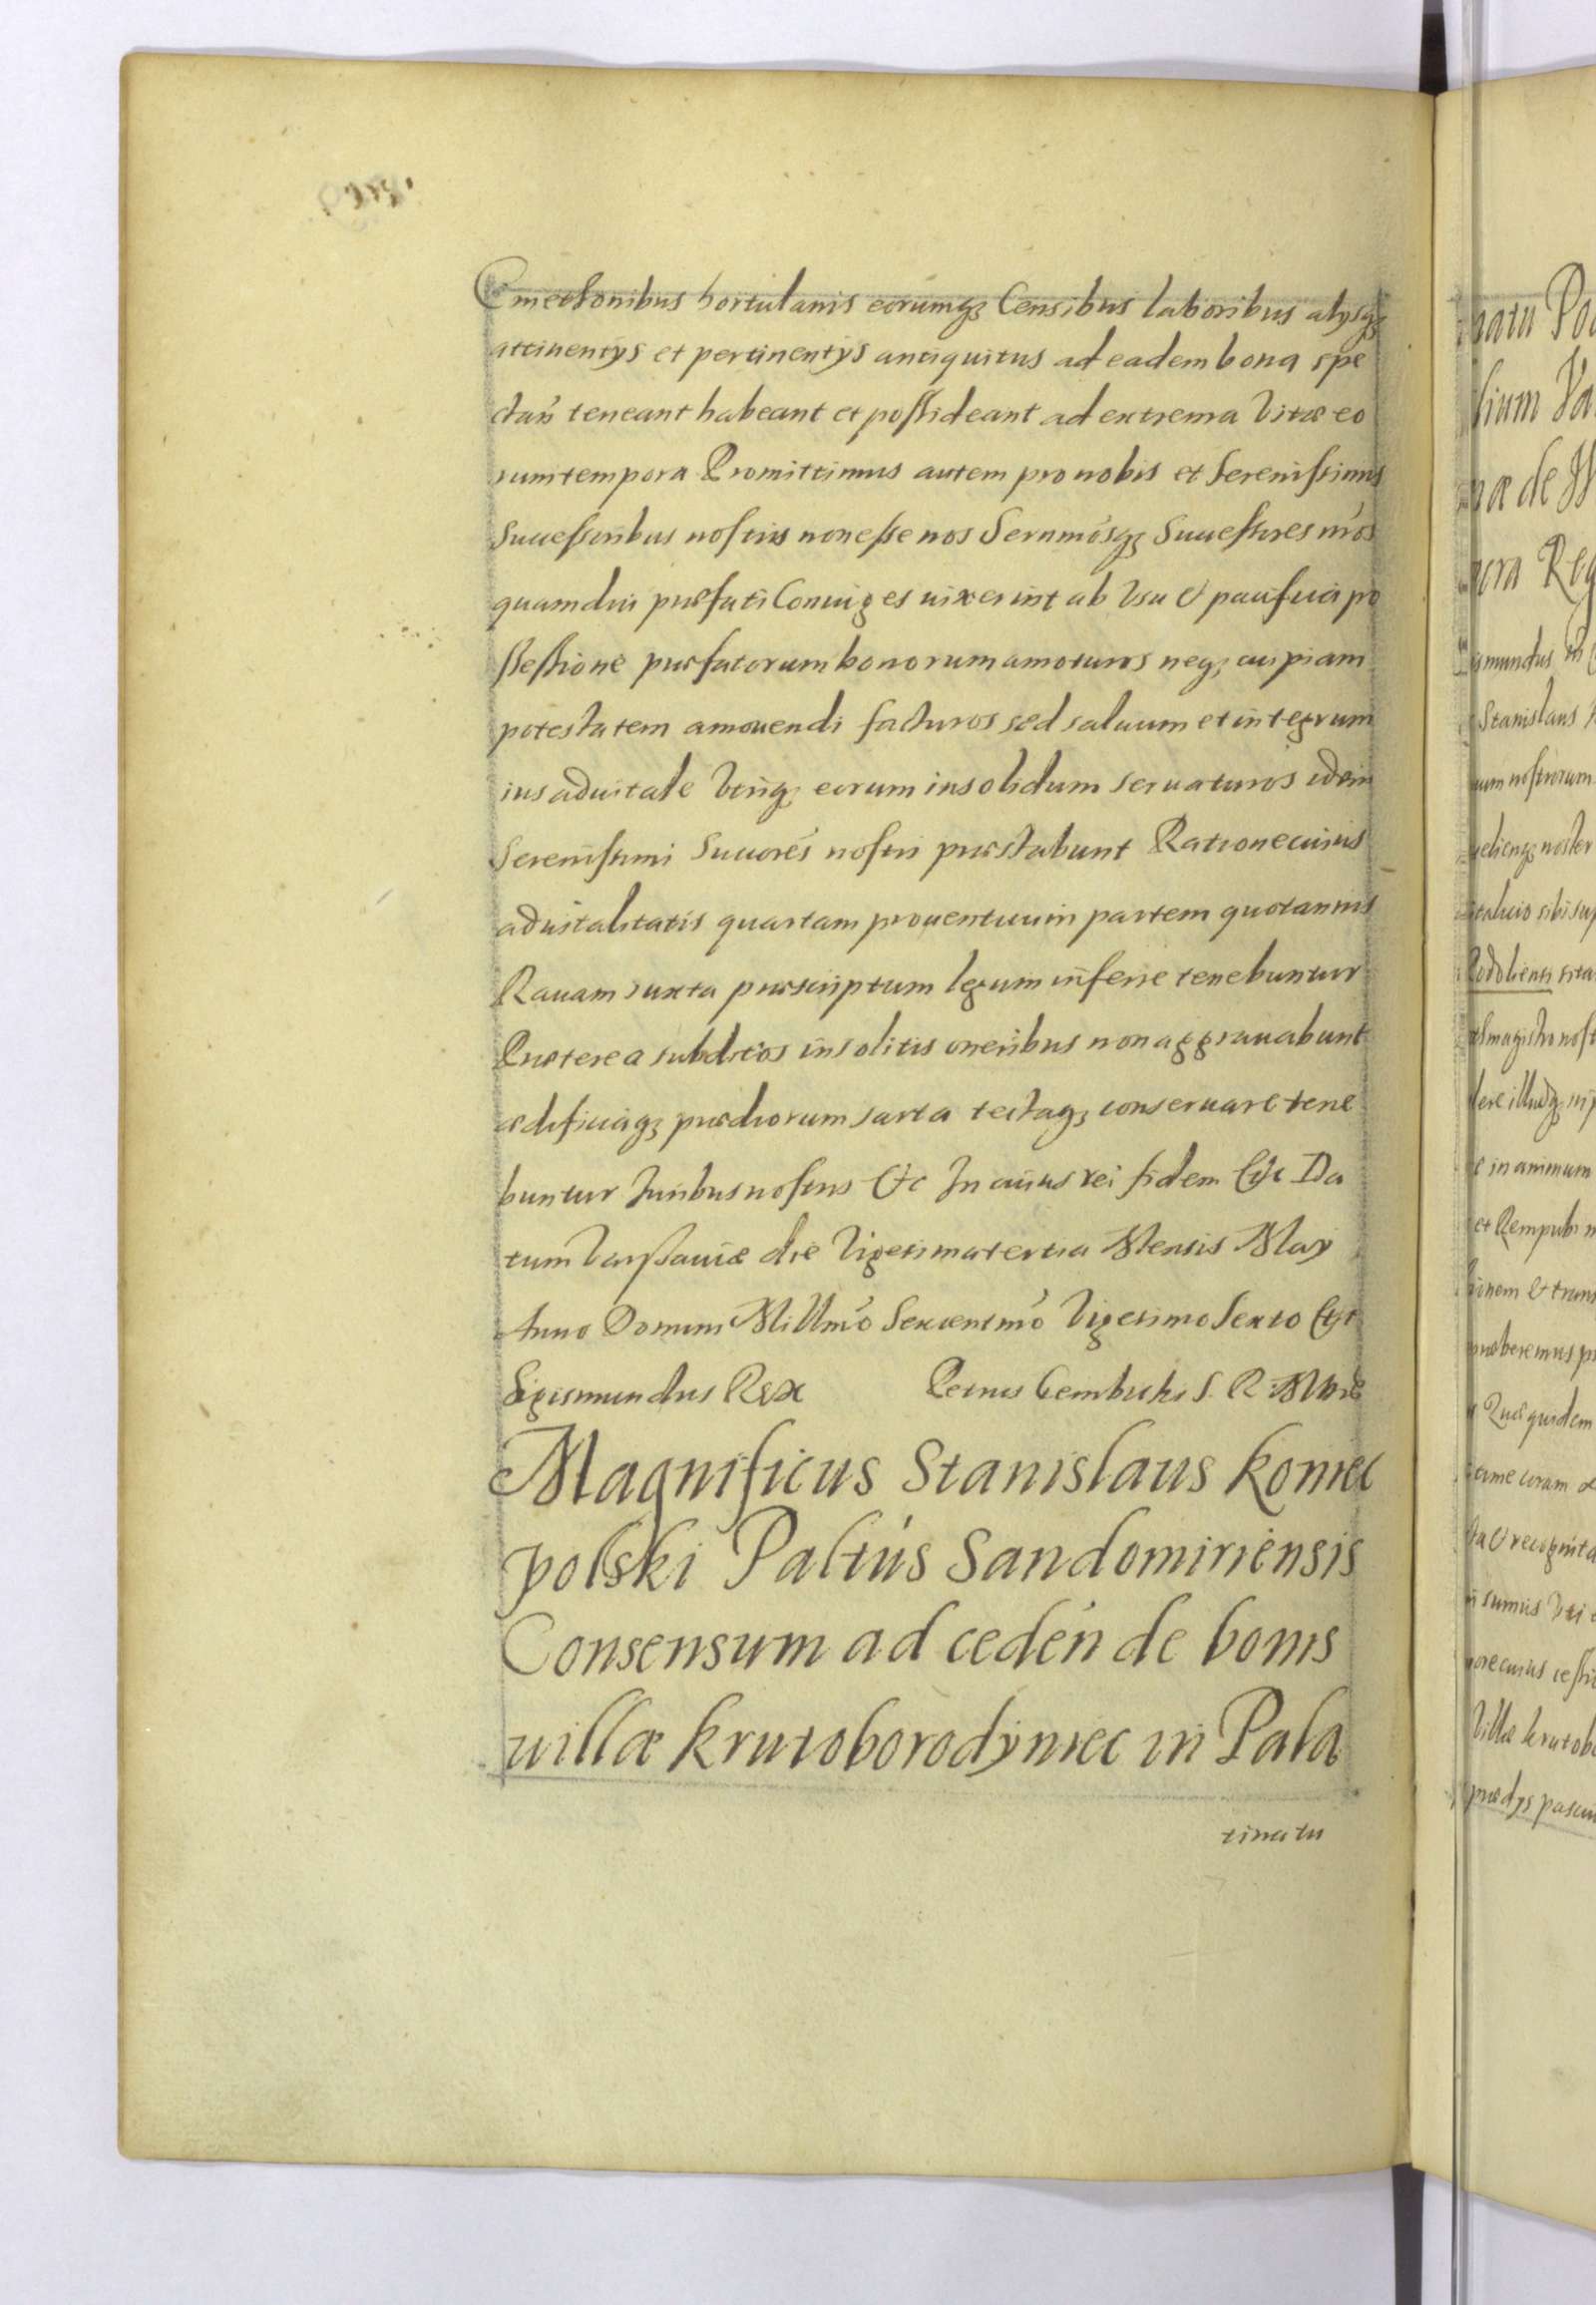 Cmethonibus hortulanis eorumq; Censibus laboribus alysq;
attinentys et pertinentys antiquitus ad eadem bona spe
ctan̄ teneant habeant et possideant ad extrema Vitæ eo
rum tempora Promittimus autem pro nobis et Serenissimis
Successoribus nostris non esse nos Sernmósq; Successores nr̄os
quamdiu præfati Coniuges uixerint ab Vsu & pacifica po
ssessione præfatorum bonorum amoturos neq; cuipiam
potestatem amouendi facturos sed saluum et integrum
ius aduitale Vtriq; eorum insolidum seruaturos idem
Serenissimi Succorés nostri præstabunt Ratione cuius
aduitalitatis quartam prouentuum partem quotannis
Rauam iuxta præscriptum legum inferre tenebuntur
Præterea subditos insolitis oneribus non aggrauabunt
ædificiaq; prædiorum sarta tectaq; conseruare tene
buntur Juribus nostris &c In cuius rei fidem &c Da
tum Varssauiæ die Vigesima tertia Mensis May
Anno Domini Millmó Sexcentmó Vigesimo Sexto &c
Sigismundus Rex Petrus Gembicki S. R. M.
Magnificus Stanislaus koniec
polski Paltiús Sandomiriensis
Consensum ad cedén de bonis
uillæ krutoborodyniec in Pala
tinatu
natu
mundus in
Stanislaus
um nostrorum
noster
sibi
magistro
in animum
et Rempub
quidem
coram
recognita
sumus Vti
Villæ